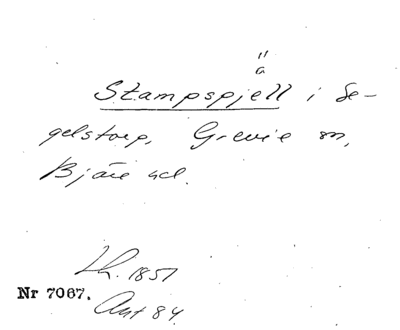 ä
Stampspjell i Se-
gelstorp, Grevie sn,
Bjäre hd.
Lh. 1851
Nr 7067.
Ant 84.